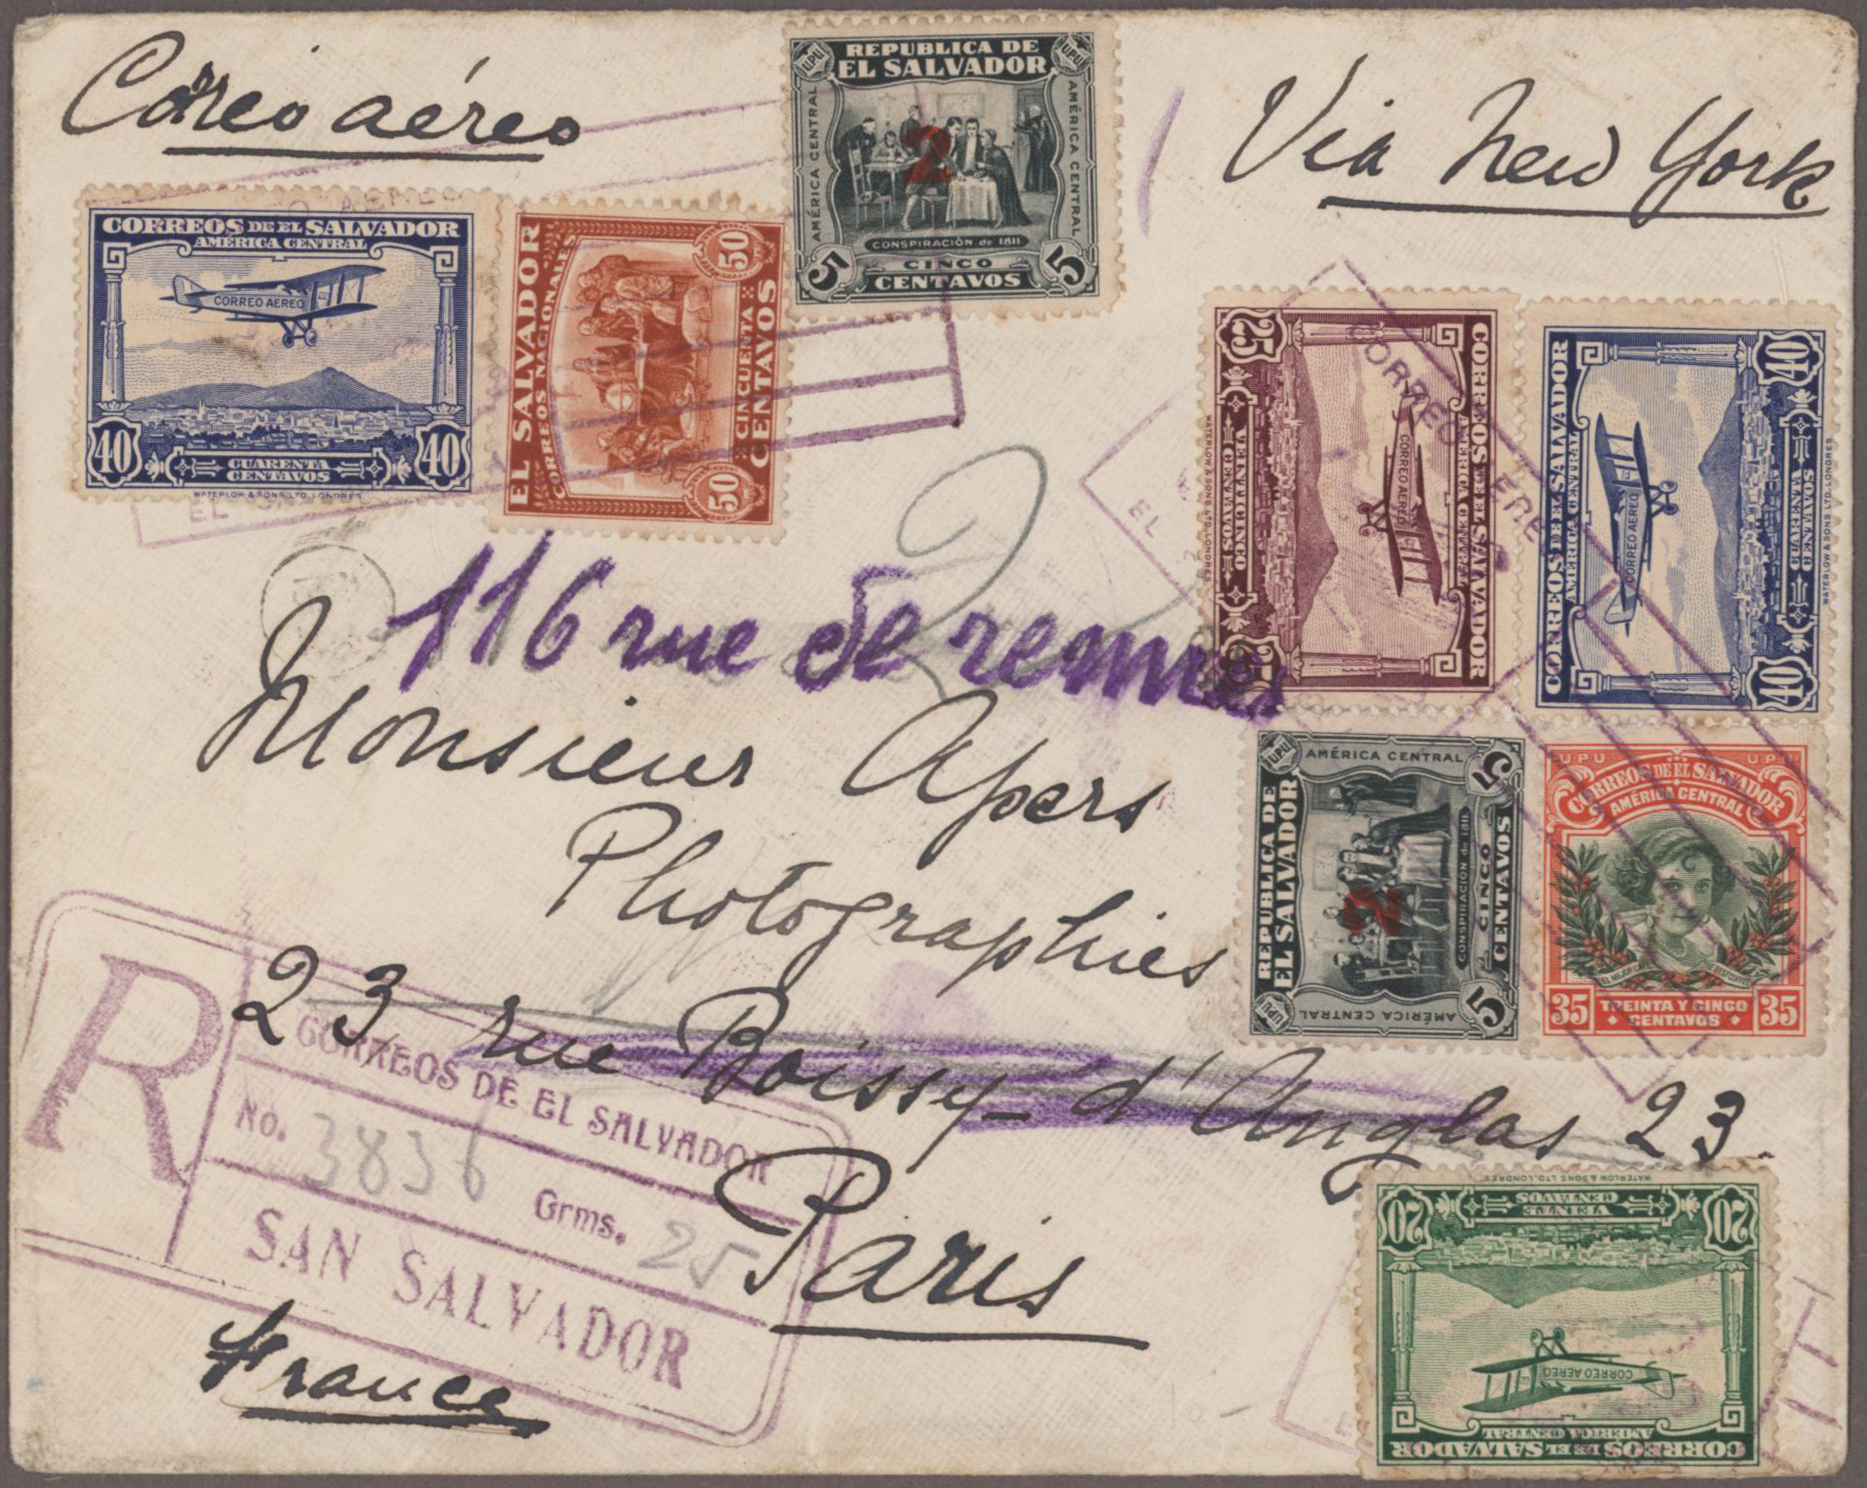 Correo aéreo
Via New York
REPUBLICA DE
EL SALVADOR
UPU UPU
AMÉRICA CENTRAL
AMÉRICA CENTRAL
2
CONSPIRACIÓN de 1811
5 CINCO 5
CENTAVOS
CORREOS DE EL SALVADOR
AMÉRICA CENTRAL
CORREO AEREO
40 CUARENTA 40
CENTAVOS
WATERLOW & SONS LTD. LONDRES
EL SALVADOR
CORREOS NACIONALES
50 50
CINCUENTA
CENTAVOS
CORREOS DE EL SALVADOR
AMÉRICA CENTRAL
CORREO AEREO
25 VEINTICINCO 25
CENTAVOS
WATERLOW & SONS LTD. LONDRES
CORREO AEREO
EL
CORREOS DE EL SALVADOR
AMÉRICA CENTRAL
CORREO AEREO
40 CUARENTA 40
CENTAVOS
WATERLOW & SONS LTD. LONDRES
116 rue de rennes
Monsieur Apers
Photographies
23 rue Boissy-d'Anglas 23.
Paris
France
REPUBLICA DE
EL SALVADOR
UPU UPU
AMÉRICA CENTRAL
AMÉRICA CENTRAL
2
CONSPIRACIÓN de 1811
5 CINCO 5
CENTAVOS
UPU UPU
CORREOS DE EL SALVADOR
AMÉRICA CENTRAL
35 TREINTA Y CINCO 35
CENTAVOS
R
CORREOS DE EL SALVADOR
No. 3836
Grms. 25
SAN SALVADOR
CORREOS DE EL SALVADOR
AMÉRICA CENTRAL
CORREO AEREO
20 VEINTE 20
CENTAVOS
WATERLOW & SONS LTD. LONDRES